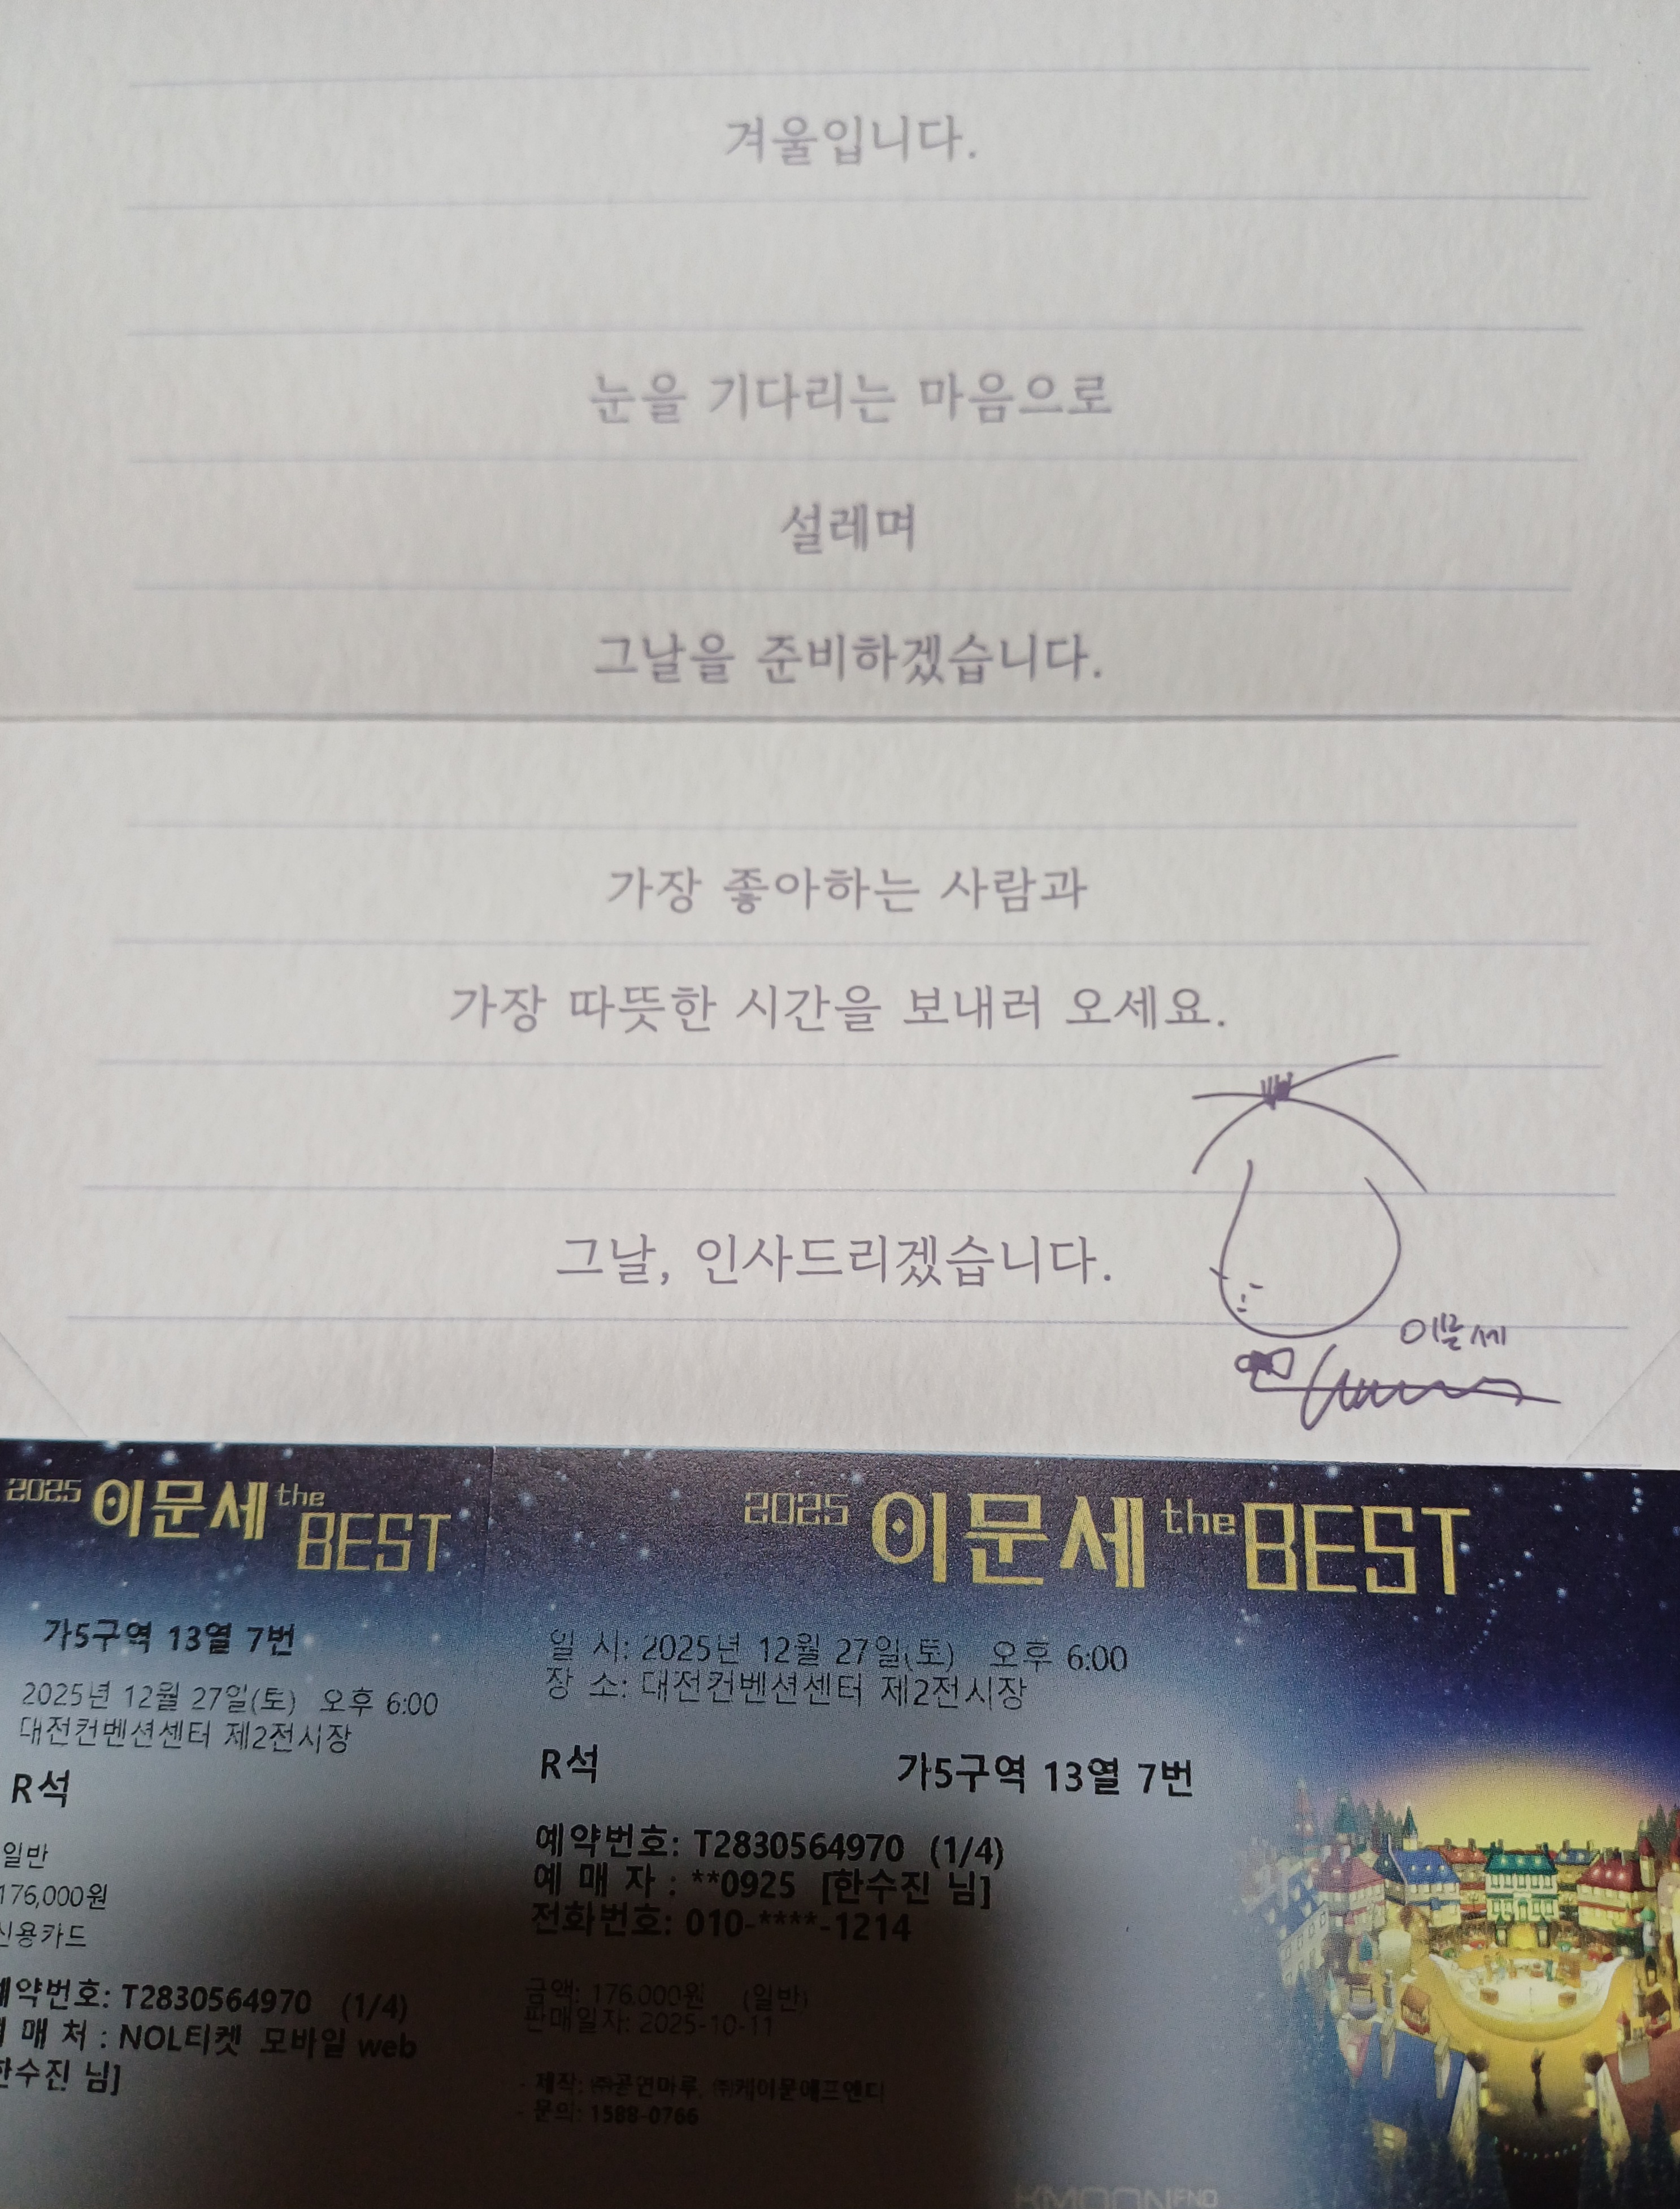 겨울입니다.
눈을 기다리는 마음으로
설레며
그날을 준비하겠습니다.
가장 좋아하는 사람과
가장 따뜻한 시간을 보내러 오세요.
그날, 인사드리겠습니다.
이문세
2025 이문세 the BEST
가5구역 13열 7번
2025년 12월 27일(토) 오후 6:00
대전컨벤션센터 제2전시장
R석
일반
176,000원
신용카드
예약번호: T2830564970 (1/4)
매 처 : NOL티켓 모바일 web
한수진 님]
2025 이문세 the BEST
일 시: 2025년 12월 27일(토) 오후 6:00
장 소: 대전컨벤션센터 제2전시장
R석 가5구역 13열 7번
예약번호: T2830564970 (1/4)
예 매 자 : **0925 [한수진 님]
전화번호: 010-****-1214
금액: 176,000원 (일반)
판매일자: 2025-10-11
- 제작: ㈜공연마루, ㈜케이문에프엔디
- 문의: 1588-0766
KMOONFND